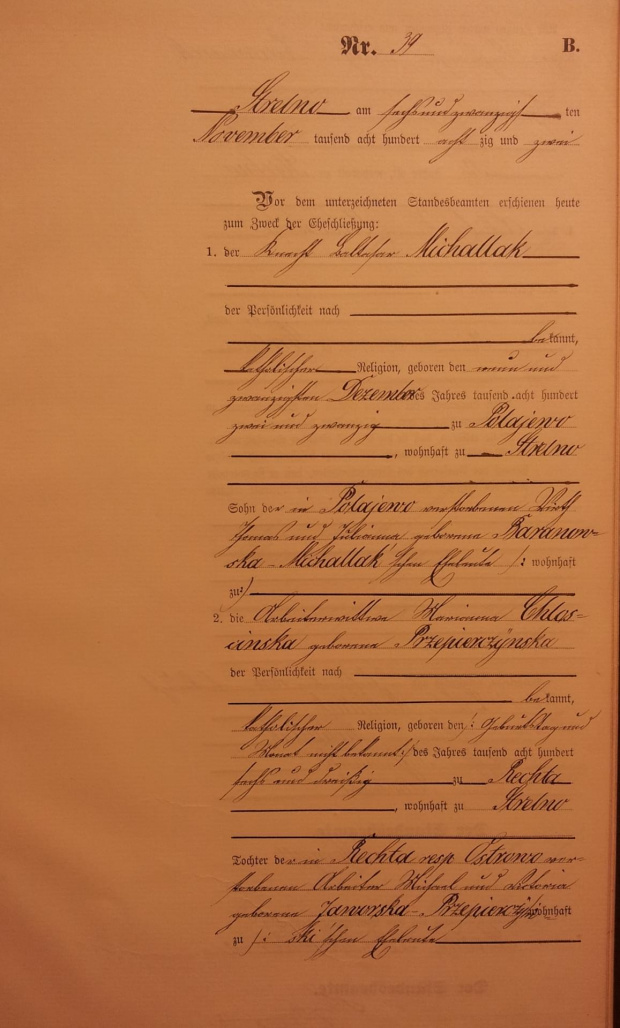 Nr. 39 B.
Strelno am sechsundzwanzigsten
November tausend acht hundert achtzig und zwei
Vor dem unterzeichneten Standesbeamten erschienen heute
zum Zweck der Eheschließung:
1. der Knecht Balthasar Michallak
der Persönlichkeit nach
bekannt,
katholischer Religion, geboren den neun und
zwanzigsten Dezember des Jahres tausend acht hundert
zwei und zwanzig zu Polajewo
, wohnhaft zu Strelno
Sohn der in Polajewo verstorbenen Wirth
Thomas und Julianna geborene Baranow-
ska-Michallak'schen Eheleute /: wohnhaft
zu :/
2. die Arbeiterwittwe Marianna Chlos-
cinska geborene Przepierczynska
der Persönlichkeit nach
bekannt,
katholischer Religion, geboren den /: Geburtstag und
Monat nicht bekannt :/ des Jahres tausend acht hundert
sechs und dreißig zu Rechta
, wohnhaft zu Strelno
Tochter der in Rechta resp Ostrowo ver-
storbenen Arbeiter Michael und Victoria
geborene Jaworska-Przepierczyn- wohnhaft
zu /: ski'schen Eheleute